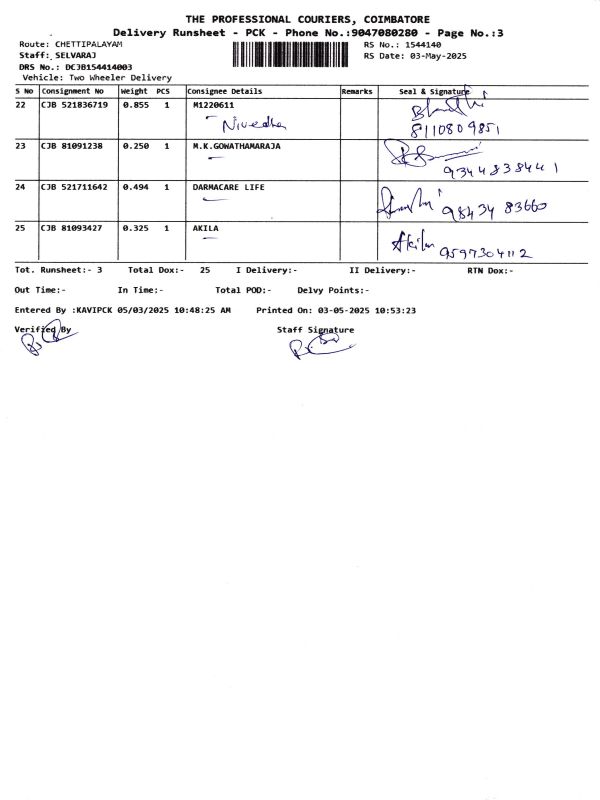 THE PROFESSIONAL COURIERS, COIMBATORE
Delivery Runsheet - PCK - Phone No.:9047080280 - Page No.:3
Route: CHETTIPALAYAM RS No.: 1544140
Staff: SELVARAJ RS Date: 03-May-2025
DRS No.: DCJB154414003
Vehicle: Two Wheeler Delivery
S No Consignment No Weight PCS Consignee Details Remarks Seal & Signature
22 CJB 521836719 0.855 1 M1220611
Nivedha
8110809851
23 CJB 81091238 0.250 1 M.K.GOWATHAMARAJA
9344838441
24 CJB 521711642 0.494 1 DARMACARE LIFE
98434 83660
25 CJB 81093427 0.325 1 AKILA
Akila 9597304112
Tot. Runsheet:- 3 Total Dox:- 25 I Delivery:- II Delivery:- RTN Dox:-
Out Time:- In Time:- Total POD:- Delvy Points:-
Entered By :KAVIPCK 05/03/2025 10:48:25 AM Printed On: 03-05-2025 10:53:23
Verified By Staff Signature